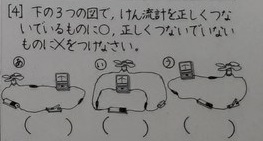 [4] 下の3つの図で,けん流計を正しくつな
いでいるものに○,正しくつないでいない
ものに×をつけなさい。
あ い う
( ) ( ) ( )